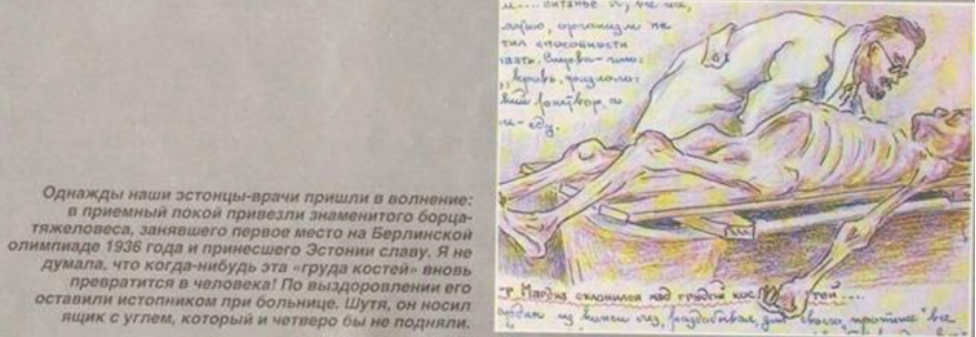 Однажды наши эстонцы-врачи пришли в волнение:
в приемный покой привезли знаменитого борца-
тяжеловеса, занявшего первое место на Берлинской
олимпиаде 1936 года и принесшего Эстонии славу. Я не
думала, что когда-нибудь эта «груда костей» вновь
превратится в человека! По выздоровлении его
оставили истопником при больнице. Шутя, он носил
ящик с углем, который и четверо бы не подняли.
организм не
способности
кровь, физиоло-
еду.
Мардна склонился над грудой кос тей...
из кожи лез, раздобывая для своего